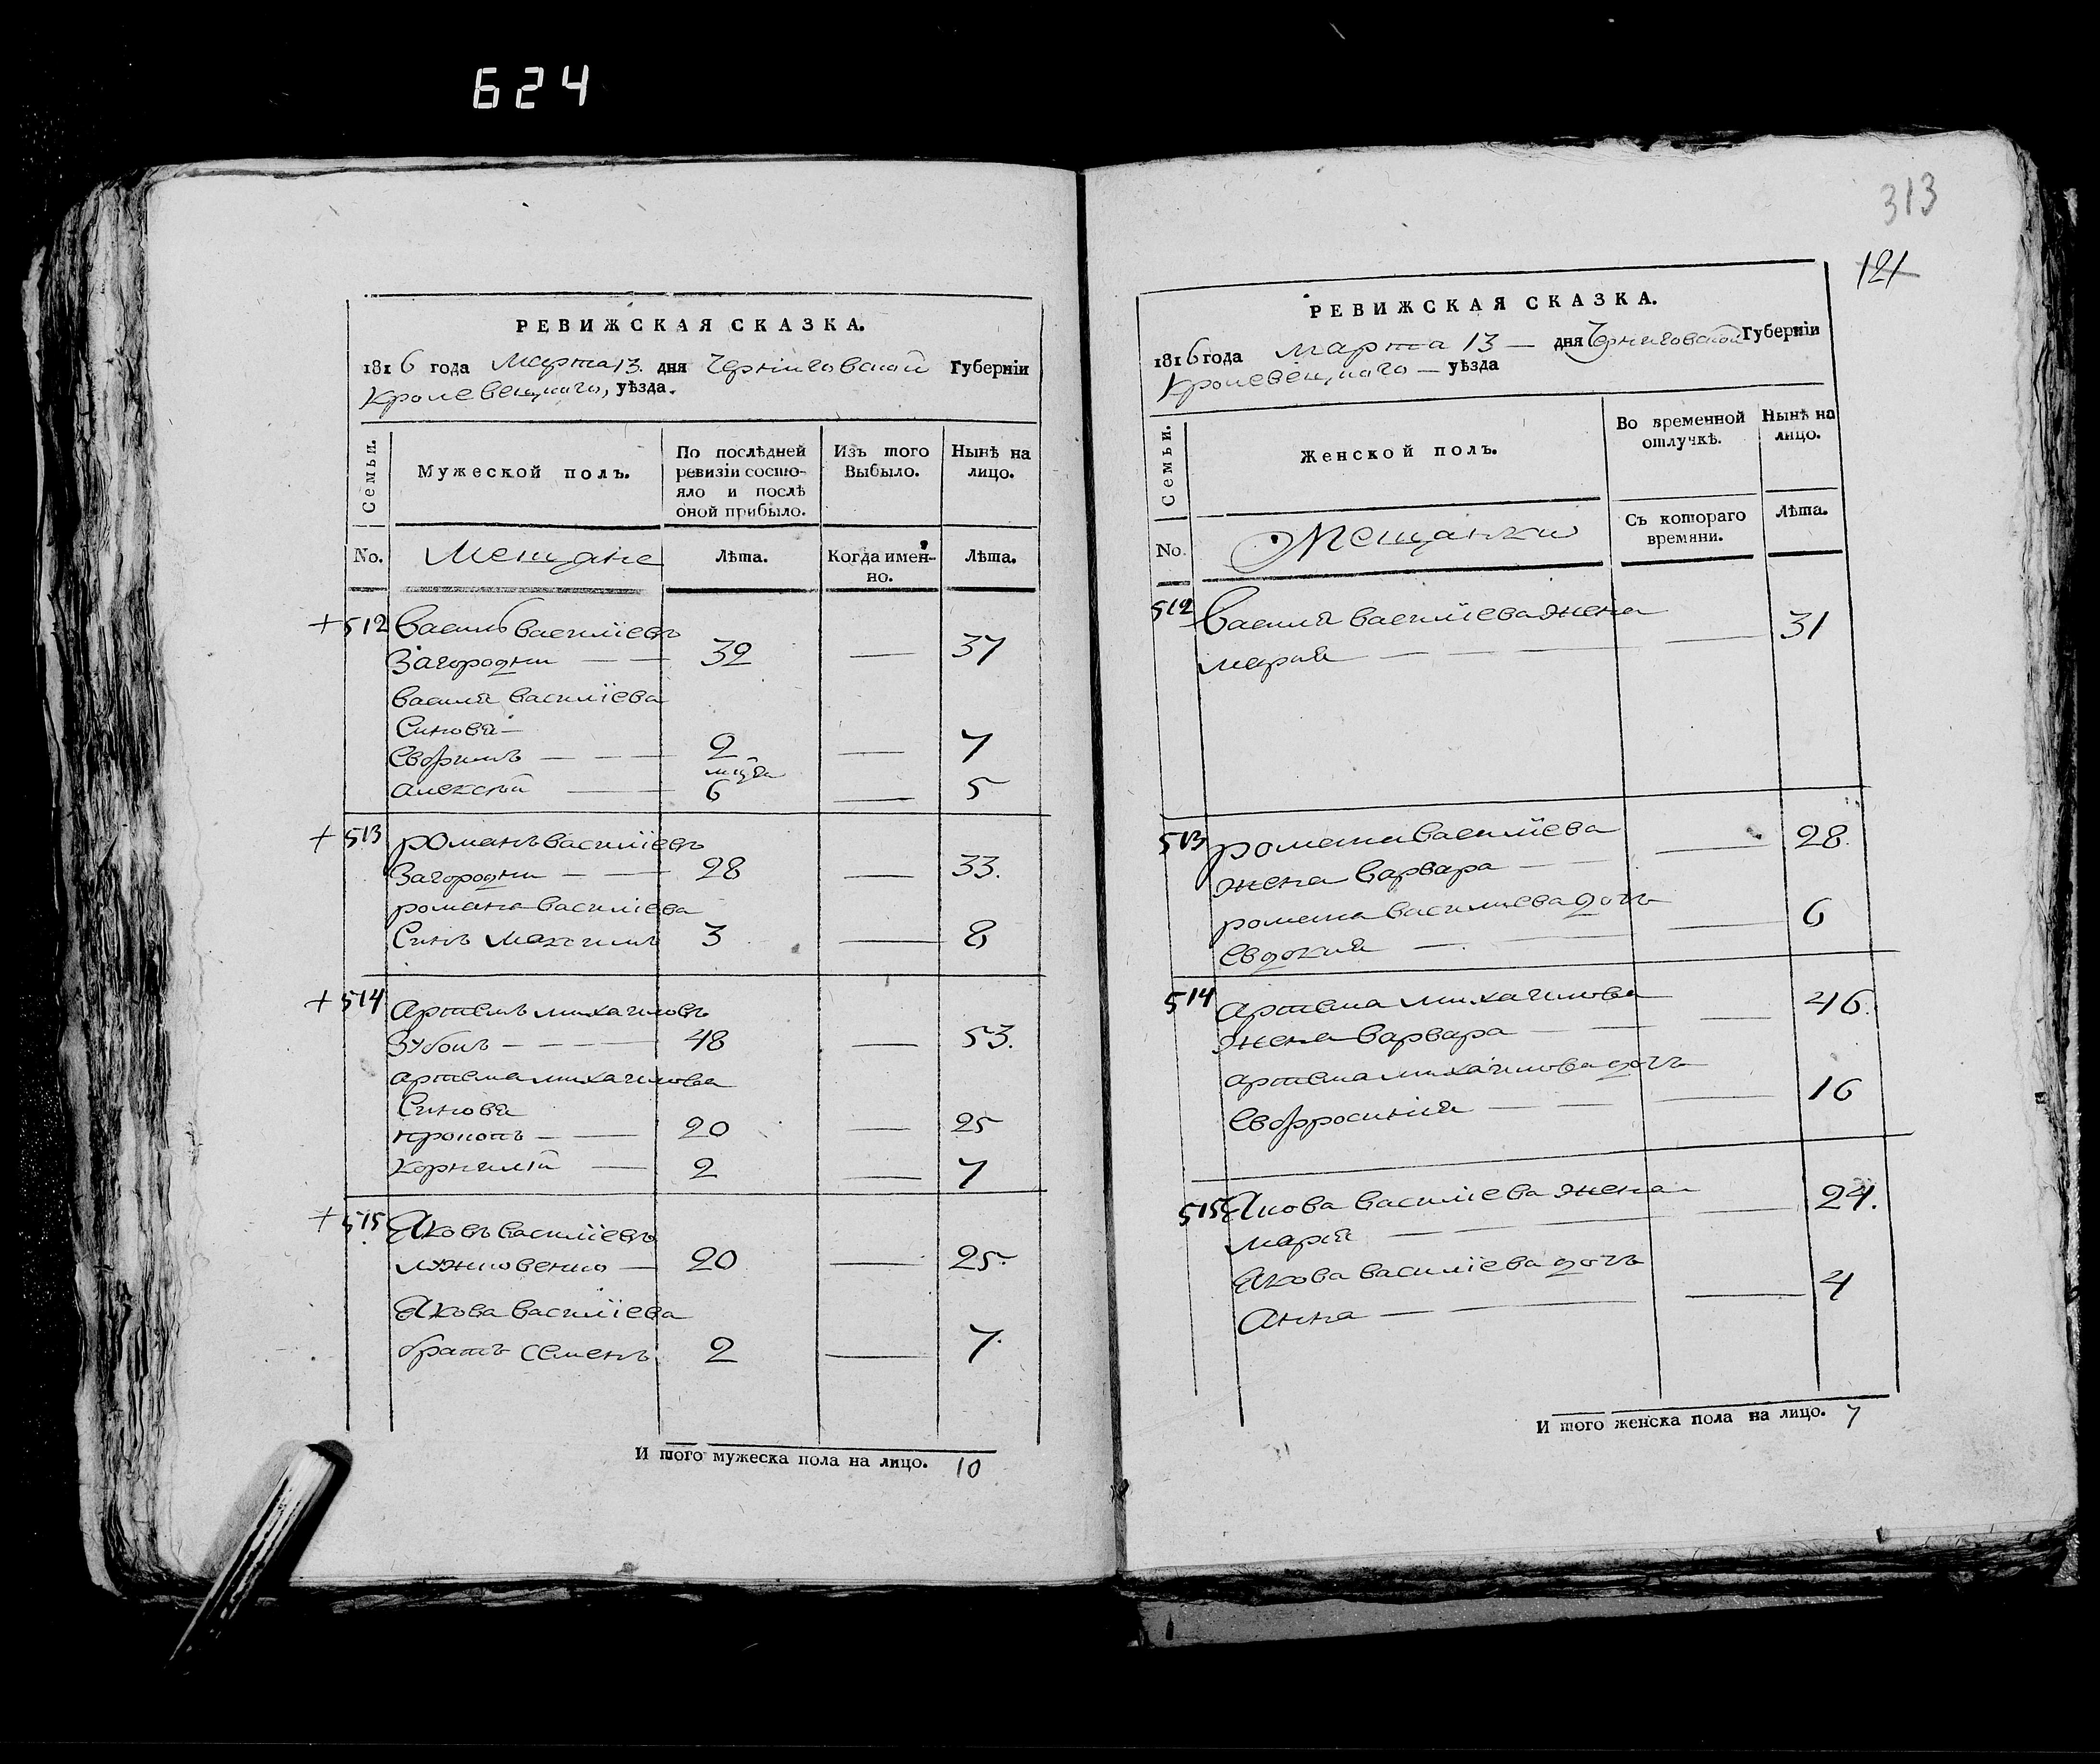 624
РЕВИЖСКАЯ СКАЗКА.
1816 года Марта 13. дня Черниговской Губерніи
Кролевецкого, уѣзда.
Семьи.
Мужеской полъ.
По послѣдней ревизіи состо-
яло и послѣ оной прибыло.
Изъ того Выбыло.
Нынѣ на лицо.
No.
Мещане
Лѣта.
Когда имен-
но.
Лѣта.
+ 512 Василь Василіевъ
Загородни — — 32 — 37
Василя Василіева
Синовя —
Евфимъ — — — 2 — 7
мця
Алексѣй — 6 — 5
+ 513 Романъ Василіевъ
Загородни — — 28 — 33.
Романа Василіева
Синъ Максимъ 3 — 8
+ 514 Артемъ Михаиловъ
48 — 53.
Артема Михаилова
Синовя
Прокопъ — — 20 — 25
Корнилій — 2 — 7
+ 515 Яковъ Василіевъ
20 — 25.
Якова Василіева
братъ Семенъ 2 — 7.
И того мужеска пола на лицо. 10
313
121
РЕВИЖСКАЯ СКАЗКА.
1816 года Марта 13 — дня Черниговской Губерніи
Кролевецкого — уѣзда
Семьи.
Женской полъ.
Во временной отлучкѣ.
Нынѣ на лицо.
No.
Мещанки
Съ котораго времяни.
Лѣта.
512 Василя Василіева жена
Марія — — — — 31
513 Романа Василіева
жена Варвара — — — 28.
Романа Василиева дочъ
Евдокия — — — 6
514 Артема Михаилова
жена Варвара — — — 46.
Артема Михаилова дочъ
Евфросиния — — — 16
515 Якова Василіева жена
Марія — — — 24.
Якова Василіева дочъ
Анна — — — 4
И того женска пола на лицо. 7